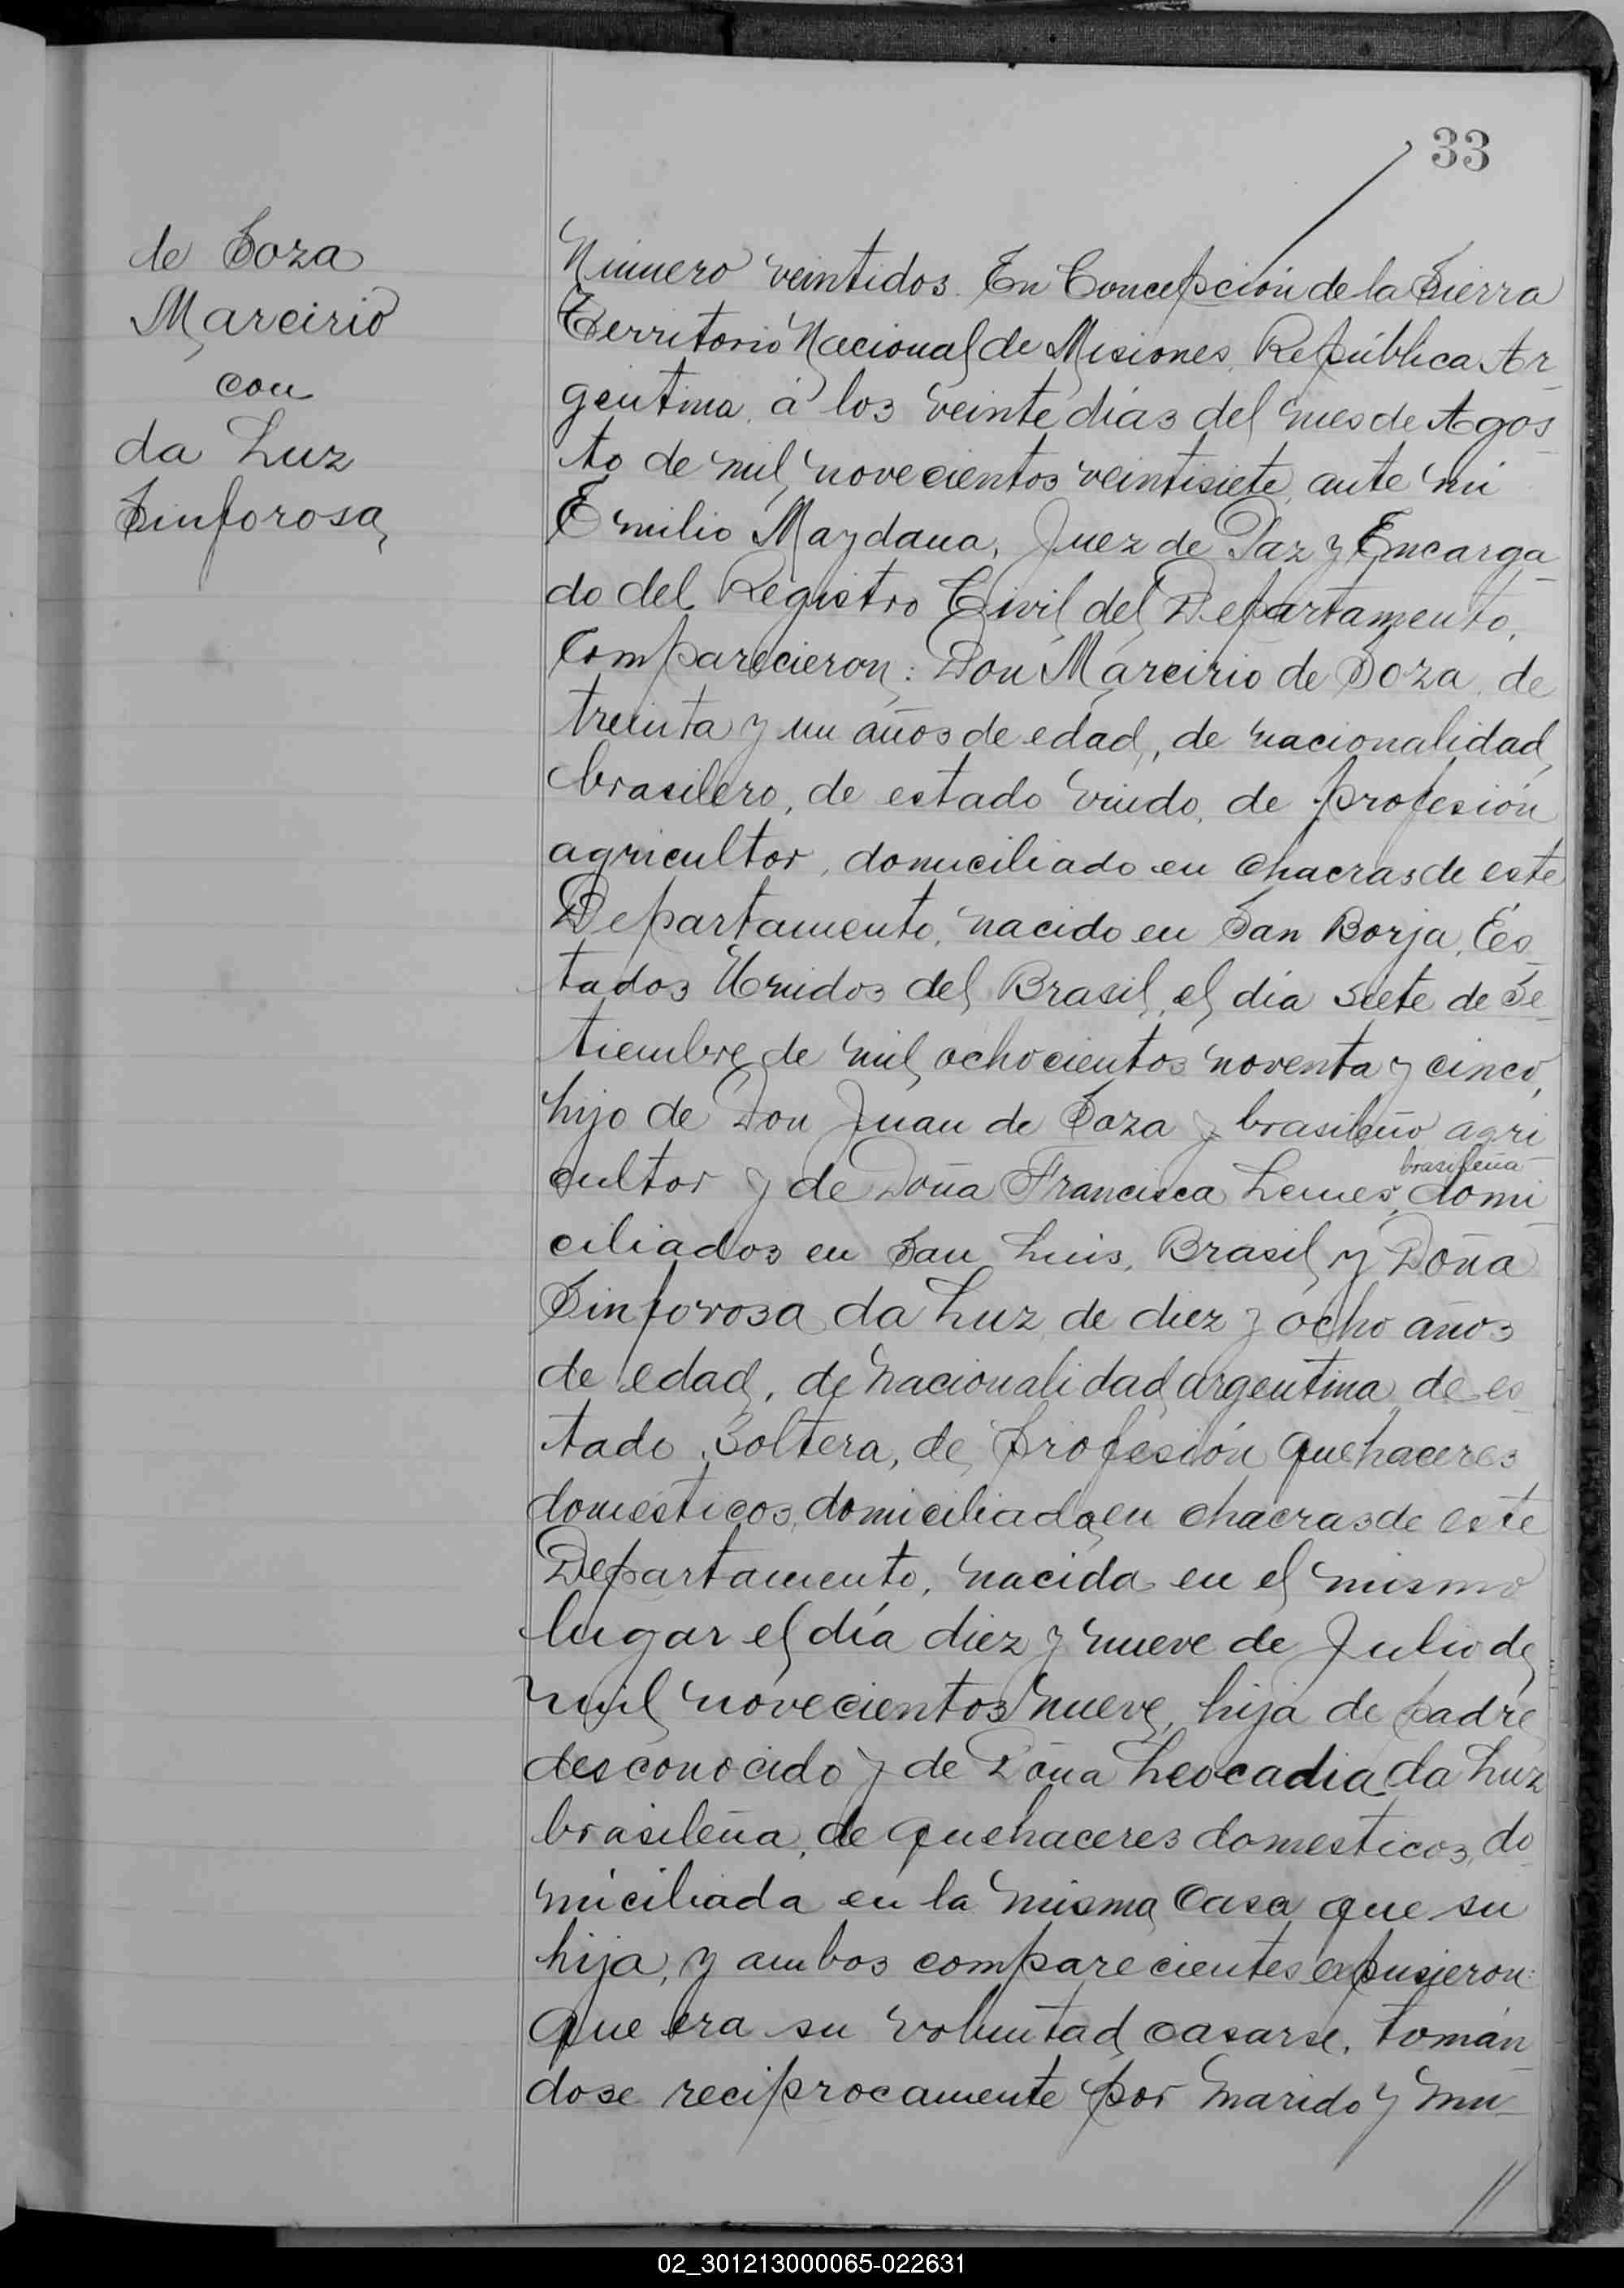 33
de Soza
Marcirio
con
da Luz
Sinforosa
Número veintidos. En Concepción de la Sierra
Territorio Nacional de Misiones, República Ar-
gentina, á los veinte días del mes de Agos-
to de mil novecientos veintisiete, ante mi
Emilio Maydana, Juez de Paz y Encarga-
do del Registro Civil del Departamento,
Comparecieron: Don Marcirio de Soza, de
treinta y un años de edad, de nacionalidad
brasilero, de estado viudo, de profesión
agricultor, domiciliado en chacras de este
Departamento, nacido en San Borja, Es-
tados Unidos del Brasil, el día siete de Se-
tiembre de mil ochocientos noventa y cinco,
hijo de Don Juan de Soza y brasileño agri
cultor y de Doña Francisca Lemes, brasileña domi-
ciliados en San Luis, Brasil y Doña
Sinforosa da Luz, de diez y ocho años
de edad, de nacionalidad argentina, de es-
tado Soltera, de profesión quehaceres
domésticos, domiciliada en chacras de este
Departamento, nacida en el mismo
lugar el día diez y nueve de Julio de
mil novecientos nueve, hija de padre
desconocido y de Doña Leocadia da Luz
brasileña, de quehaceres domesticos, do-
miciliada en la misma Casa que su
hija, y ambos comparecientes expusieron:
que era su voluntad casarse, tomán-
dose reciprocamente por marido y mu-
//
02_301213000065-022631